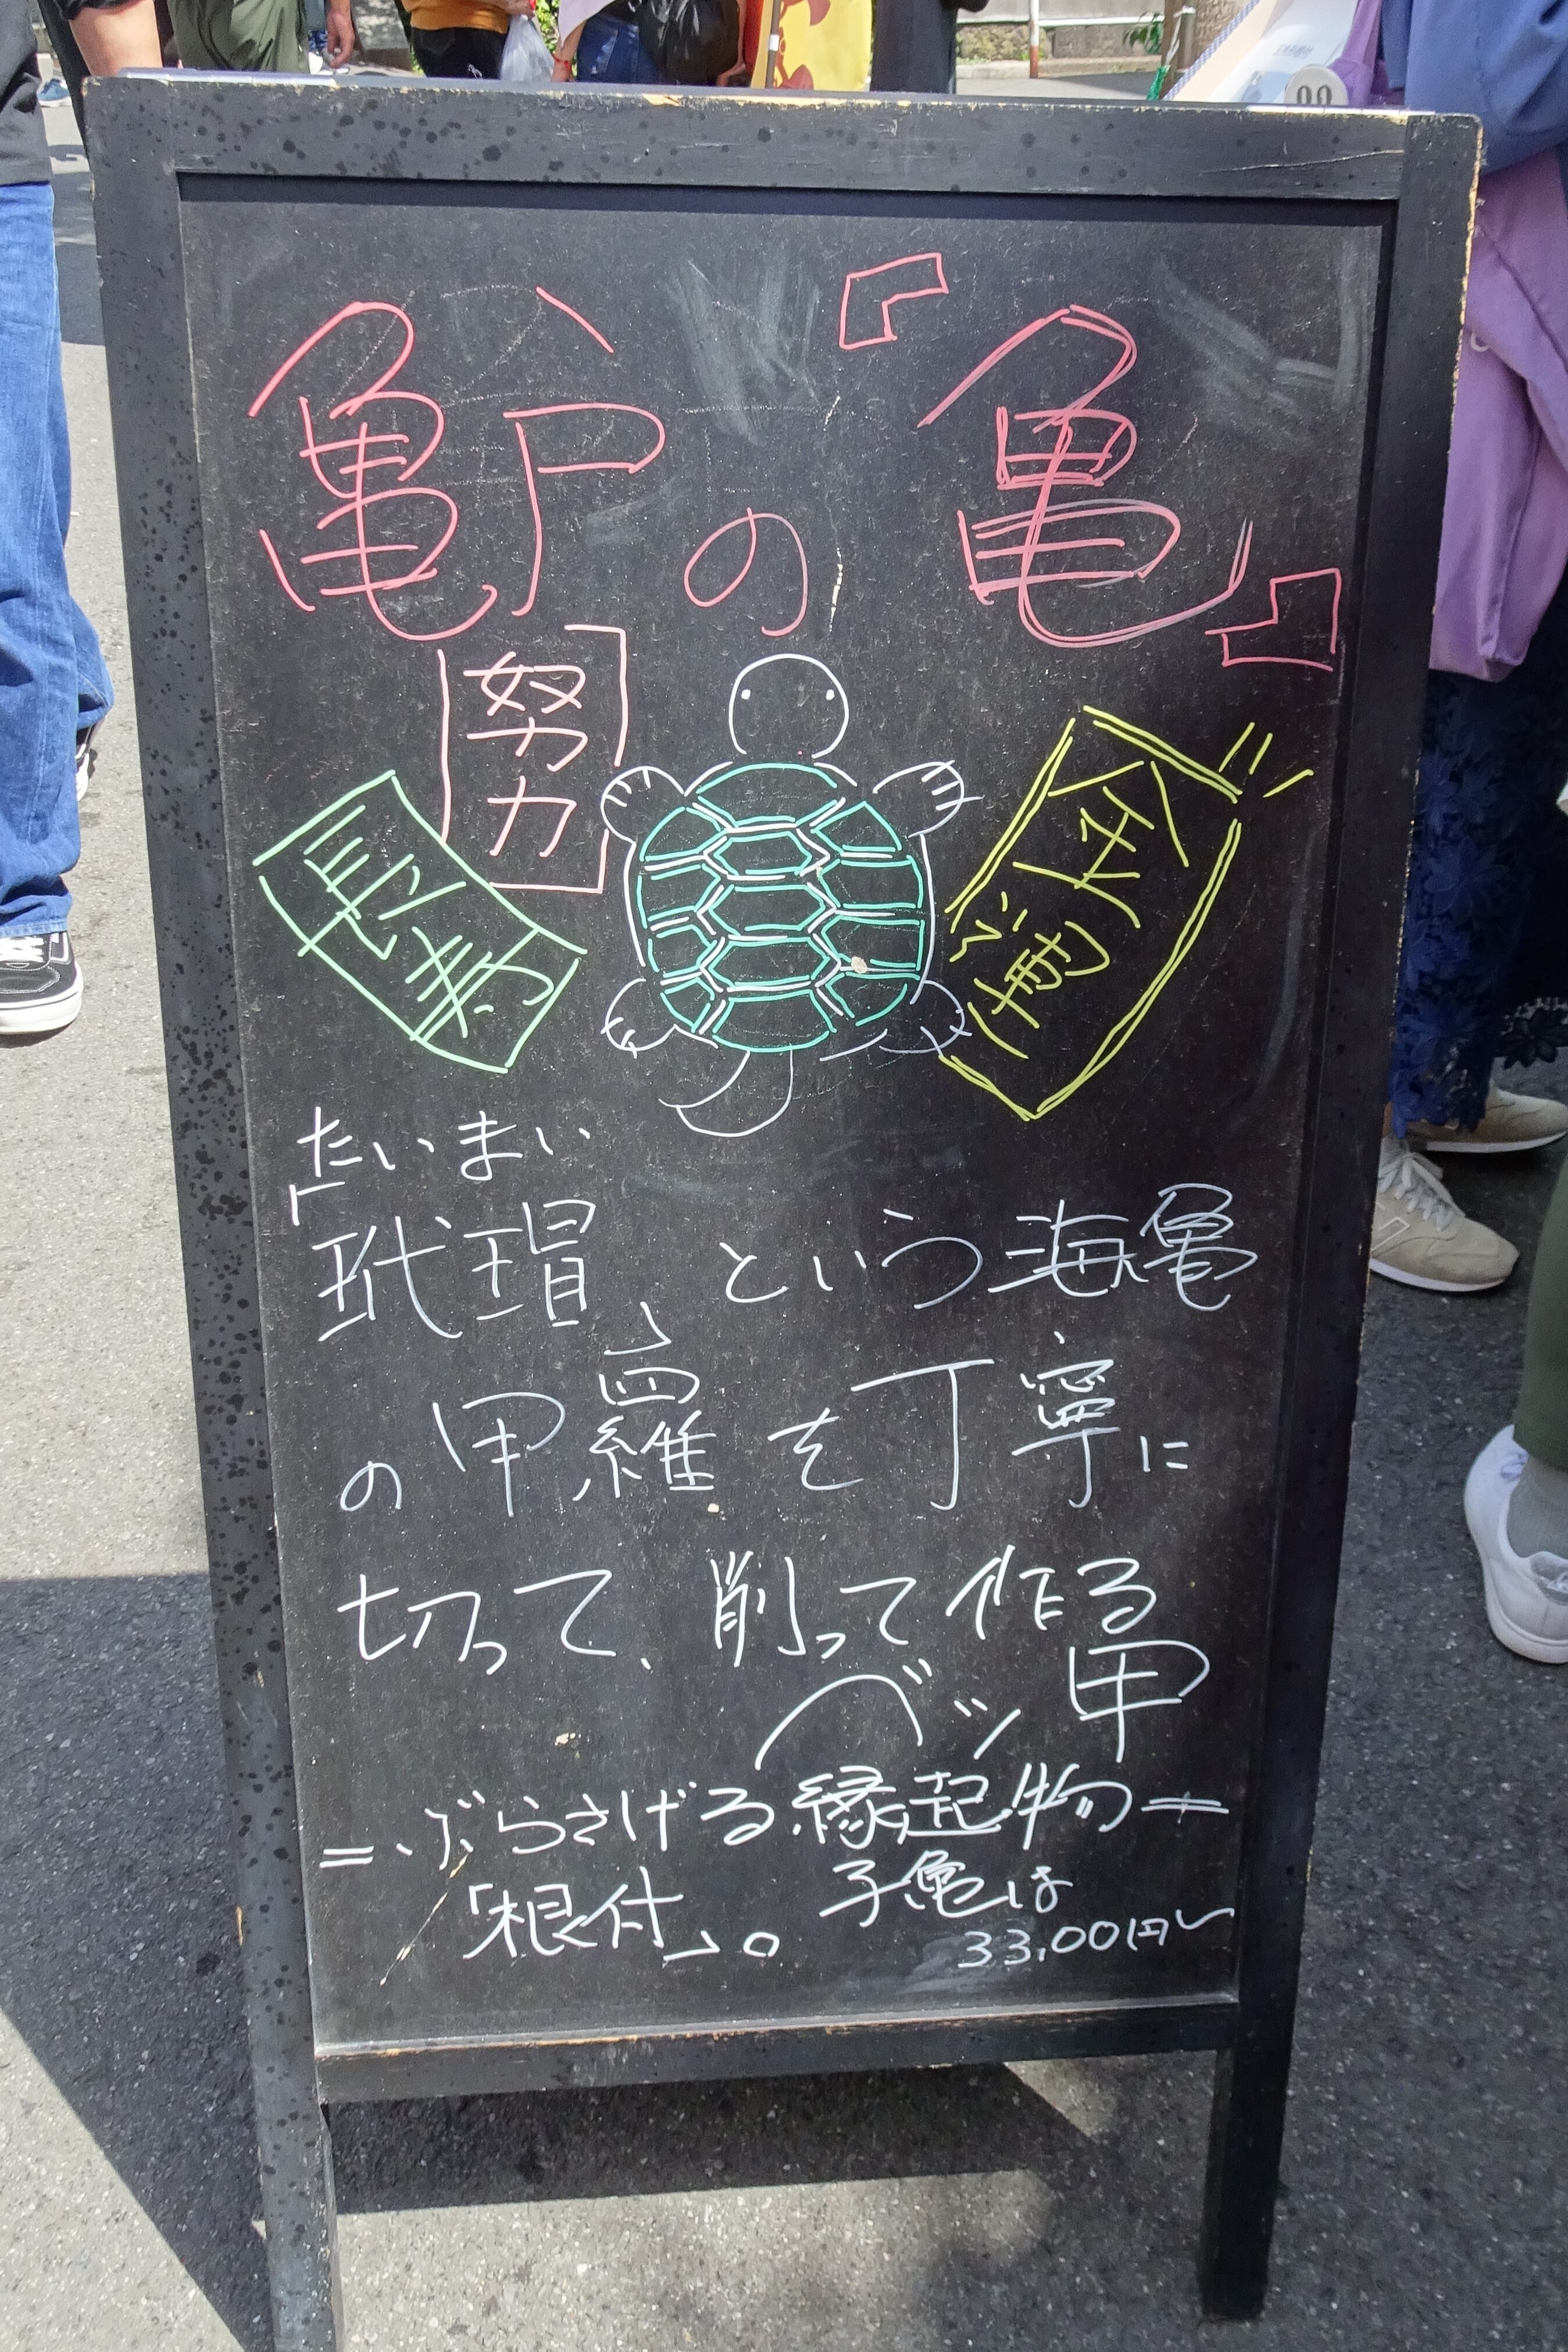 亀戸の『亀』
努力
長寿
金運
たいまい
「玳瑁」という海亀
の甲羅を丁寧に
切って、削って作る
ベッ甲
=ぶらさげる縁起物=
「根付」。子亀は
33,00円〜